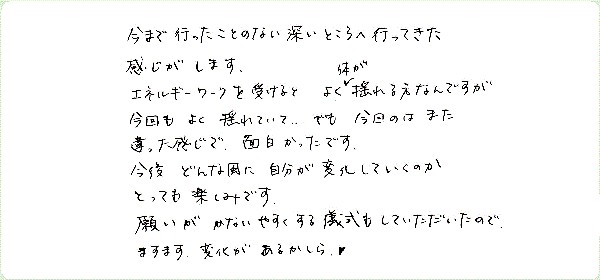 今まで行ったことのない深いところへ行ってきた
感じがします。
エネルギーワークを受けると よく体が揺れる方なんですが
今回も よく 揺れていて.. でも 今回のは また
違った感じで、面白かったです。
今後 どんな風に 自分が 変化していくのか
とっても 楽しみです。
願いが かないやすくする儀式も していただいたので、
ますます、変化が あるかしら。♥